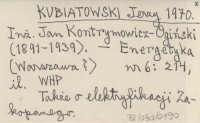 KUBIATOWSKI Jerzy 1970.
Inż. Jan Kontrymowicz-Ogiński
(1891-1939). — Energetyka
(Warszawa?) nr 6: 214,
il. WHP
Także o elektryfikacji Za-
kopanego.